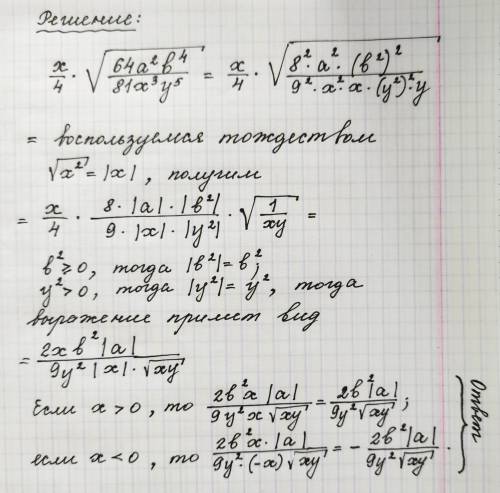 Решение:
x/4 · √(64a²b⁴/81x³y⁵) = x/4 · √(8²·a²·(b²)²/9²·x²·x·(y²)²·y)
= воспользуемся тождеством
√x² = |x| , получим
= x/4 · 8·|a|·|b²|/9·|x|·|y²| · √(1/xy) =
b² ≥ 0, тогда |b²| = b²;
y² > 0, тогда |y²| = y², тогда
выражение примет вид
= 2xb²|a|/9y²|x|·√xy
Если x > 0, то 2b²x|a|/9y²x√xy = 2b²|a|/9y²√xy;
если x < 0, то 2b²x·|a|/9y²·(-x)√xy = - 2b²|a|/9y²√xy.
Ответ